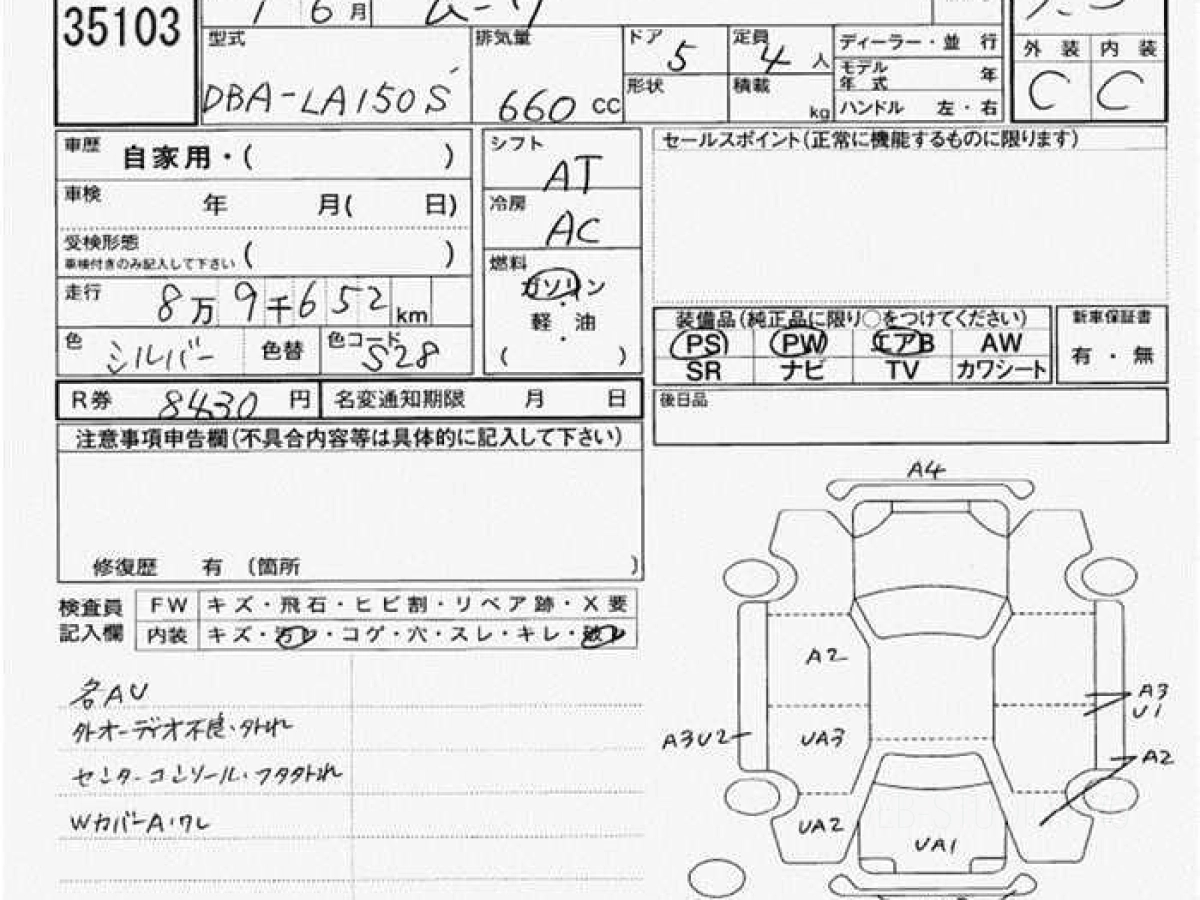 35103
6月 ムーヴ
型式 DBA-LA150S
排気量 660 cc
ドア 5
定員 4 人
形状
積載 kg
ディーラー・並 行
モデル年式 年
ハンドル 左・右
外 装 内 装
C C
車歴 自家用・( )
車検 年 月( 日)
受検形態 ( )
車検付きのみ記入して下さい
走行 8万9千652km
色 シルバー 色替 色コード S28
シフト AT
冷房 AC
燃料 ガソリン
・
軽 油
・
( )
セールスポイント(正常に機能するものに限ります)
装備品(純正品に限り○をつけてください)
PS PW エアB AW
SR ナビ TV カワシート
新車保証書
有・無
R券 8430 円 名変通知期限 月 日
後日品
注意事項申告欄(不具合内容等は具体的に記入して下さい)
修復歴 有 (箇所 )
検査員記入欄
FW キズ・飛石・ヒビ割・リペア跡・X要
内装 キズ・汚レ・コゲ・穴・スレ・キレ・破レ
各AU
外オーディオ不良・外れ
センターコンソール・フタ外れ
WカバーA・ワレ
A4
A2
A3
U1
A3U2
UA3
A2
UA2
UA1